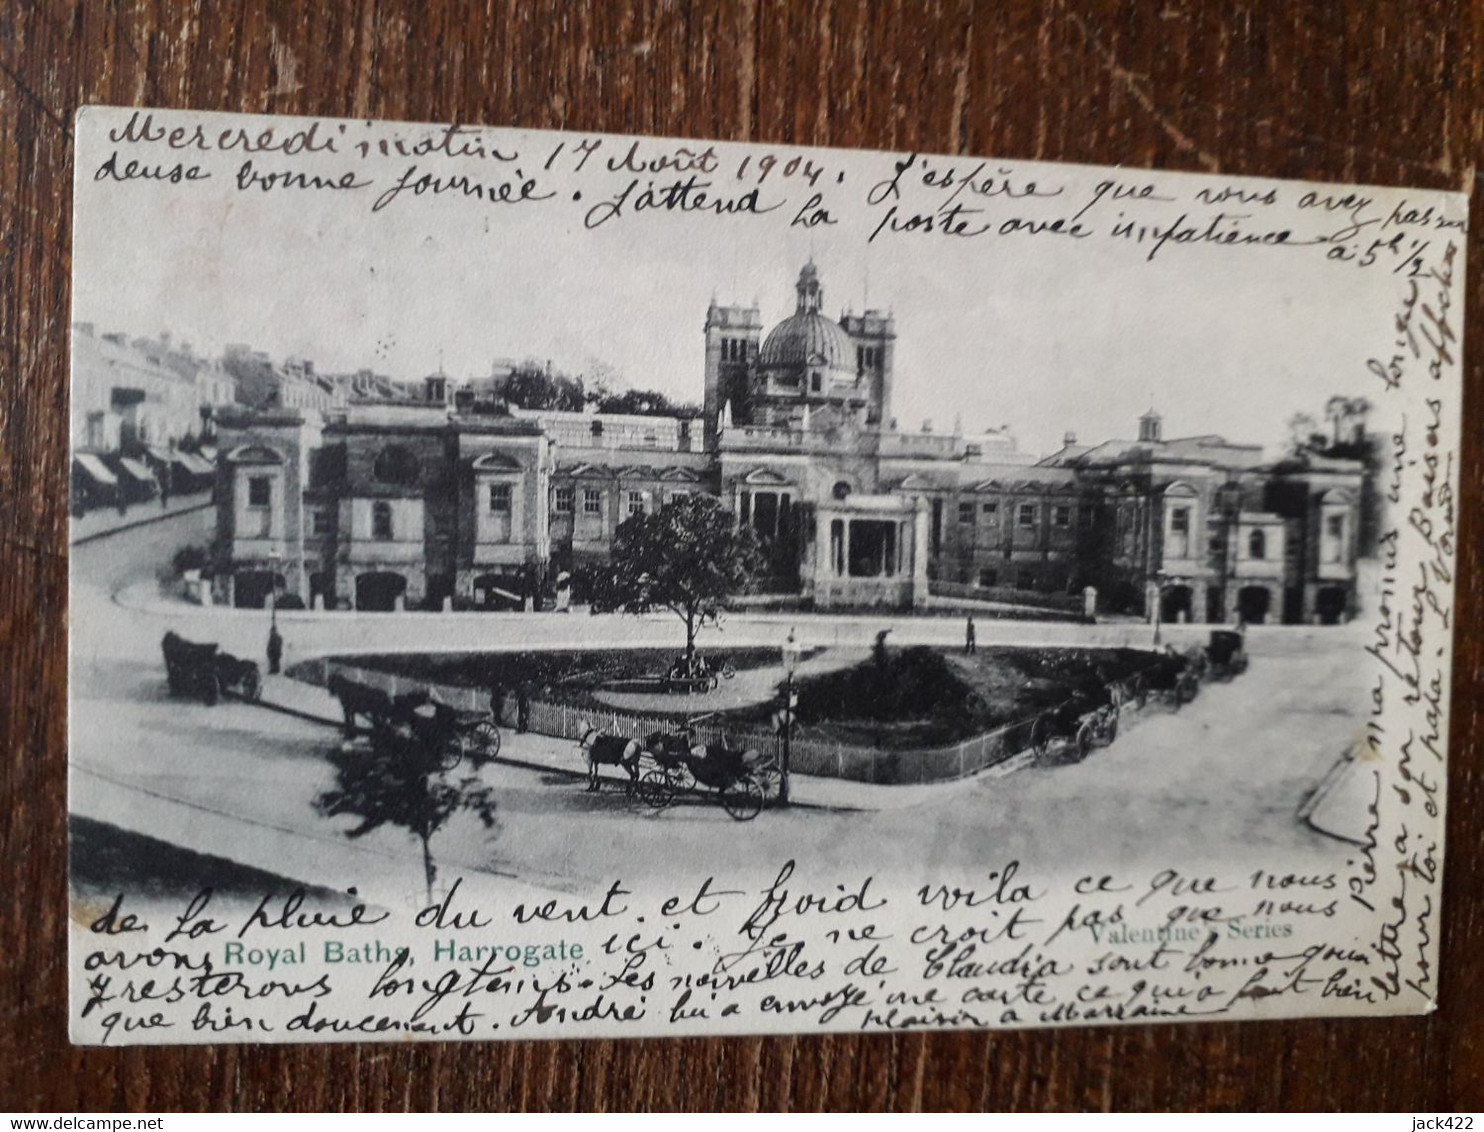 Mercredi matin 17 Août 1904. J'espère que vous avez passer
deuse bonne journée. J'attend la poste avec impatience à 5h 1/2
de la pluie du vent et froid voila ce que nous
avons ici. Je ne croit pas que nous
Royal Baths, Harrogate
Valentine's Series
y resterons longtemps. Les nouvelles de Claudia sont bonne quoi
que bien doucement. André lui a envoyé une carte ce qui a fait bien
plaisir a Marraine
Pierre ma promis une longue
lettre a son retour Baisers affectueux
pour toi et papa. L. Vond
jack422